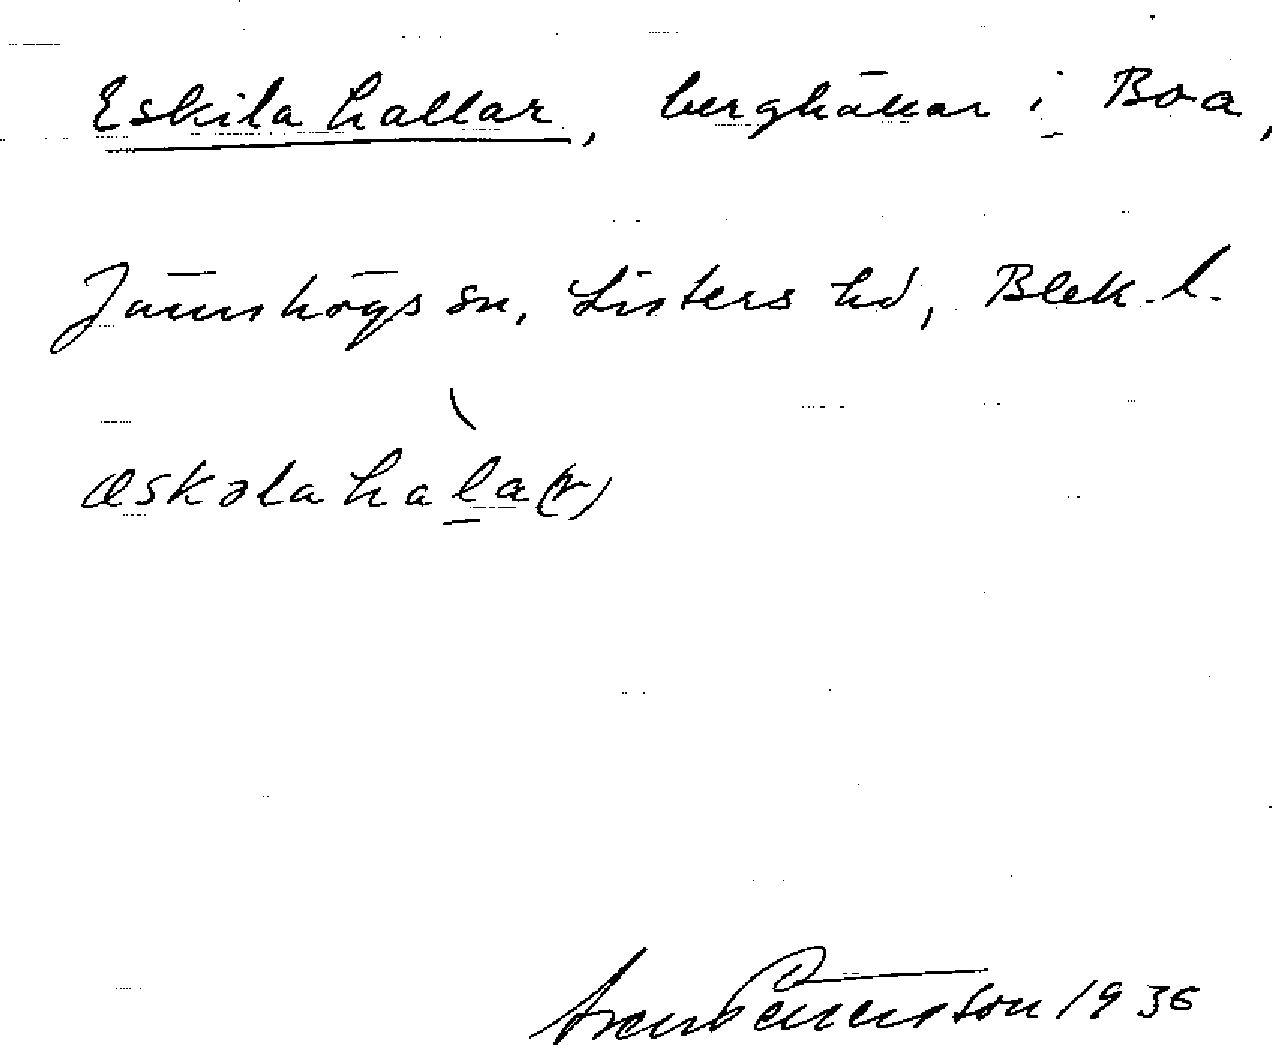 Eskilahallar, berghällar i Boa,
Jämshögs sn, Listers hd, Blek. l.
æskəlahàla(r)
Sven Benson 1936